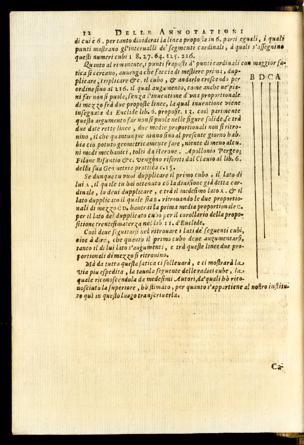 12 DELLE ANNOTATIONI
di cui è 6. per tanto dividerai la linea proposta in 6. parti eguali, i quali
punti mostrano gl'intervalli de' segmenti cardinali, à quali s'assegnino
questi numeri cubi 1. 8. 27. 64. 125. 216.
Quanto al rimanente, i punti frapposti à punti cardinali con maggior fa-
tica si cercano, avvenga che faccia di mestiere prima, dup-
plicare, triplicare &c. il cubo, & andarlo crescendo per
ordine fino al 216. il qual augumento, come anche per
far non si puole, senza l'inventione d'una proportionale
di mezzo fra due proposte linee, la qual inventione viene
insegnata da Euclide lib. 6. propos. 13. così parimente
questo augumento far non si puole nelle figure solide se trà
due date rette linee, due medie proportionali non si ritro-
vino, il che quantunque sino al presente giorno niuno hab-
bia ciò potuto geometricamente fare, niente di meno alcu-
ni modi mechanici, tolti da Herone, Apollonio Pergeo,
Filone Bisantio &c. vengono riferiti dal Clavio al lib. 6.
della sua Geometria prattica c. 15.
Se dunque tu vuoi dupplicare il primo cubo, il lato di
lui 1, il quale tu hai ottenuto cō la divisione già detta car-
dinale, lo devi dupplicare, e trà il medesimo lato
lato dupplicato il quale sia ritrovando le due proportionali
di mezzo C D, haverai la prima media proportionale
per il lato del dupplicato cubo per il corollario della propo-
sitione trentesimaterza nel lib. 11. d'Euclide.
Così devi seguitare nel ritrovare i lati de' seguenti cubi,
cioè à dire, che quanto il primo cubo deve augumentarsi,
tanto il di lui lato s'augumenti, e trà queste linee due pro-
portionali di mezzo si ritrovino.
Mà da tutta questa fatica ti solleverà, e ti mostrarà la
via più espedita, la tavola seguente delle radici cube, la
quale riconoscendola da medesimi Autori, da' quali hò rico-
nosciuto la superiore, hò stimato, per quanto s'appartiene al nostro institu-
to quì in questo luogo transferirvela.
B D C A
Ca-